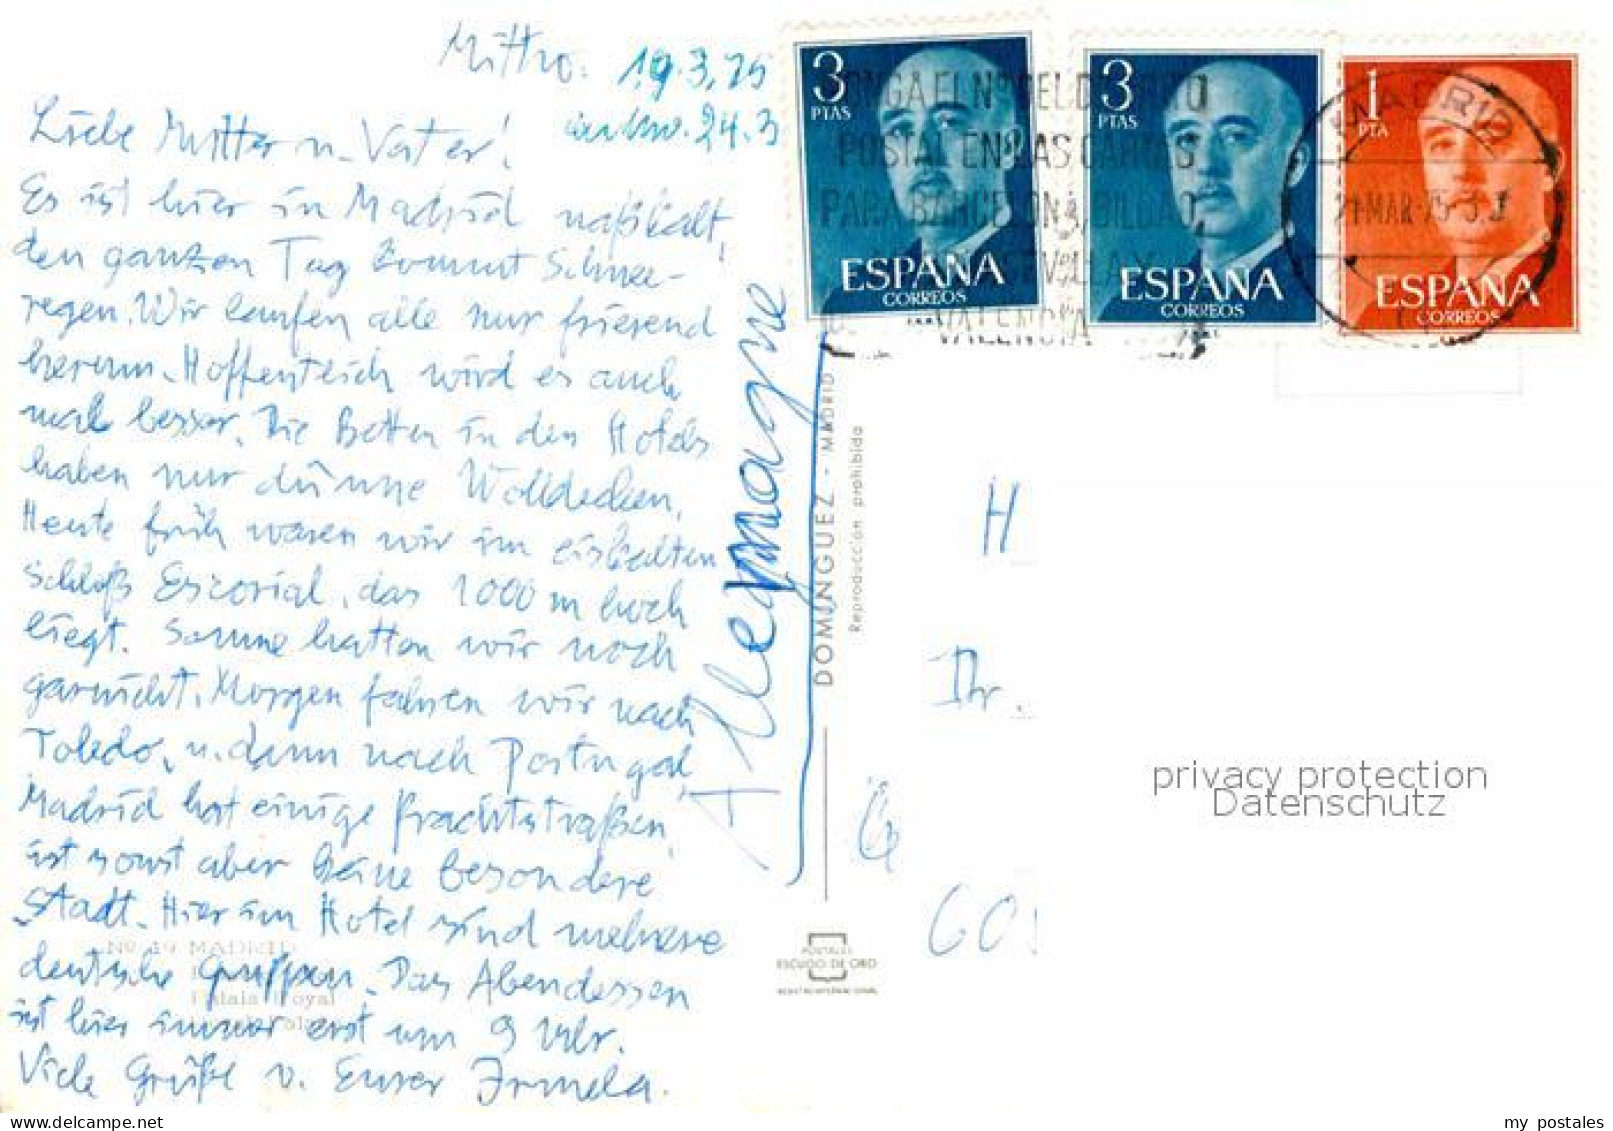 Mittwo. 19.3.75
ankw. 24.3
Liebe Mutter u. Vater!
Es ist hier in Madrid naßkalt,
den ganzen Tag kommt Schnee-
regen. Wir laufen alle nur frierend
herum. Hoffentlich wird es auch
mal besser. Die Betten in den Hotels
haben nur dünne Wolldecken.
Heute früh waren wir im eiskalten
Schloß Escorial, das 1000 m hoch
liegt. Sonne hatten wir noch
garnicht. Morgen fahren wir nach
Toledo, u. dann nach Portugal,
Madrid hat einige Prachtstraßen,
ist sonst aber keine besondere
Stadt. Hier im Hotel sind mehrere
deutsche Gruppen. Das Abendessen
ist hier immer erst um 9 Uhr.
Viele Grüße v. Eurer Irmela.
Nº 19 MADRID
Palais Royal
Allemagne
DOMINGUEZ - MADRID
Reproducción prohibida
POSTALES
ESCUDO DE ORO
3
PTAS
ESPAÑA
CORREOS
3
PTAS
ESPAÑA
CORREOS
1
PTA
ESPAÑA
CORREOS
PONGA EL Nº DEL DISTRITO
POSTAL EN LAS CARTAS
PARA BARCELONA, BILBAO,
VALENCIA
MADRID
21 MAR 75
H
Ihr.
privacy protection
Datenschutz
my postales